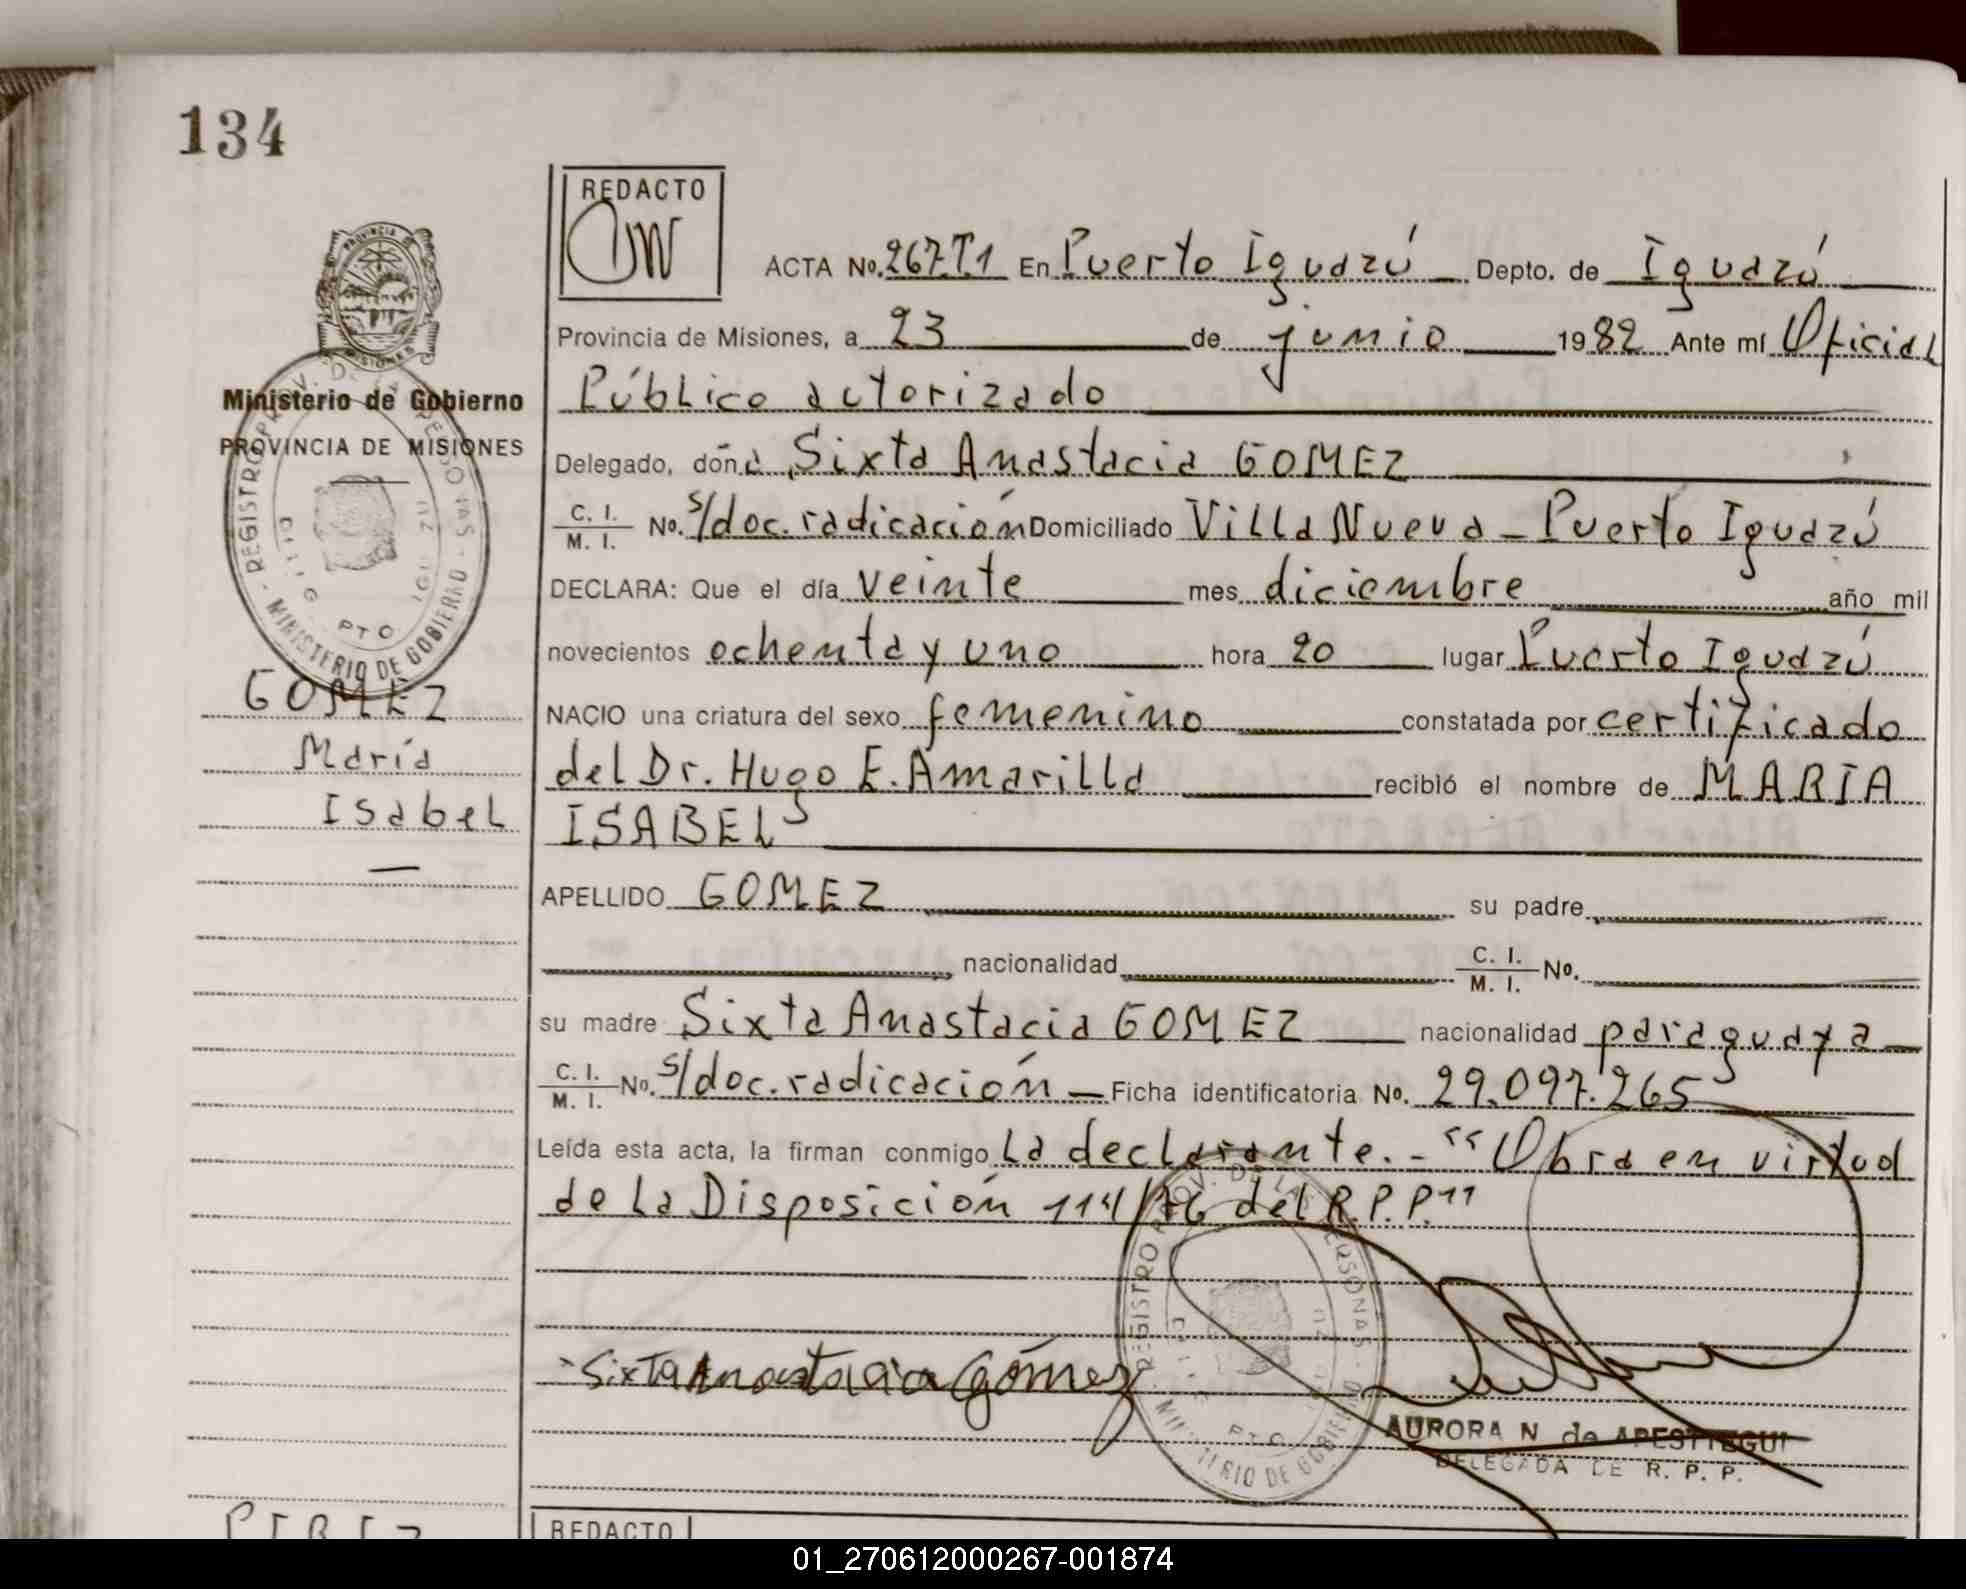 134
REDACTO
ACTA No. 267.T.1 En Puerto Iguazú Depto. de Iguazú
Provincia de Misiones, a 23 de junio 1982 Ante mí Oficial
Ministerio de Gobierno
Público autorizado
PROVINCIA DE MISIONES
Delegado, doña Sixta Anastacia GOMEZ
C. I.
M. I. No. s/doc. radicación Domiciliado Villa Nueva - Puerto Iguazú
DECLARA: Que el día veinte mes diciembre año mil
novecientos ochenta y uno hora 20 lugar Puerto Iguazú
GOMEZ
NACIO una criatura del sexo femenino constatada por certificado
María
del Dr. Hugo E. Amarilla recibió el nombre de MARIA
Isabel
ISABEL
APELLIDO GOMEZ su padre
nacionalidad C. I.
M. I. No.
su madre Sixta Anastacia GOMEZ nacionalidad paraguaya
C. I.
M. I. No. s/doc. radicación Ficha identificatoria No. 29.097.265
Leída esta acta, la firman conmigo la declarante. - "Obra en virtud
de la Disposición 114/76 del R.P.P"
REGISTRO PROV. DE LAS PERSONAS - MINISTERIO DE GOBIERNO
Sixta Anastacia Gómez
AURORA N. de APESTEGUI
DELEGADA DE R. P. P.
REDACTO
01_270612000267-001874